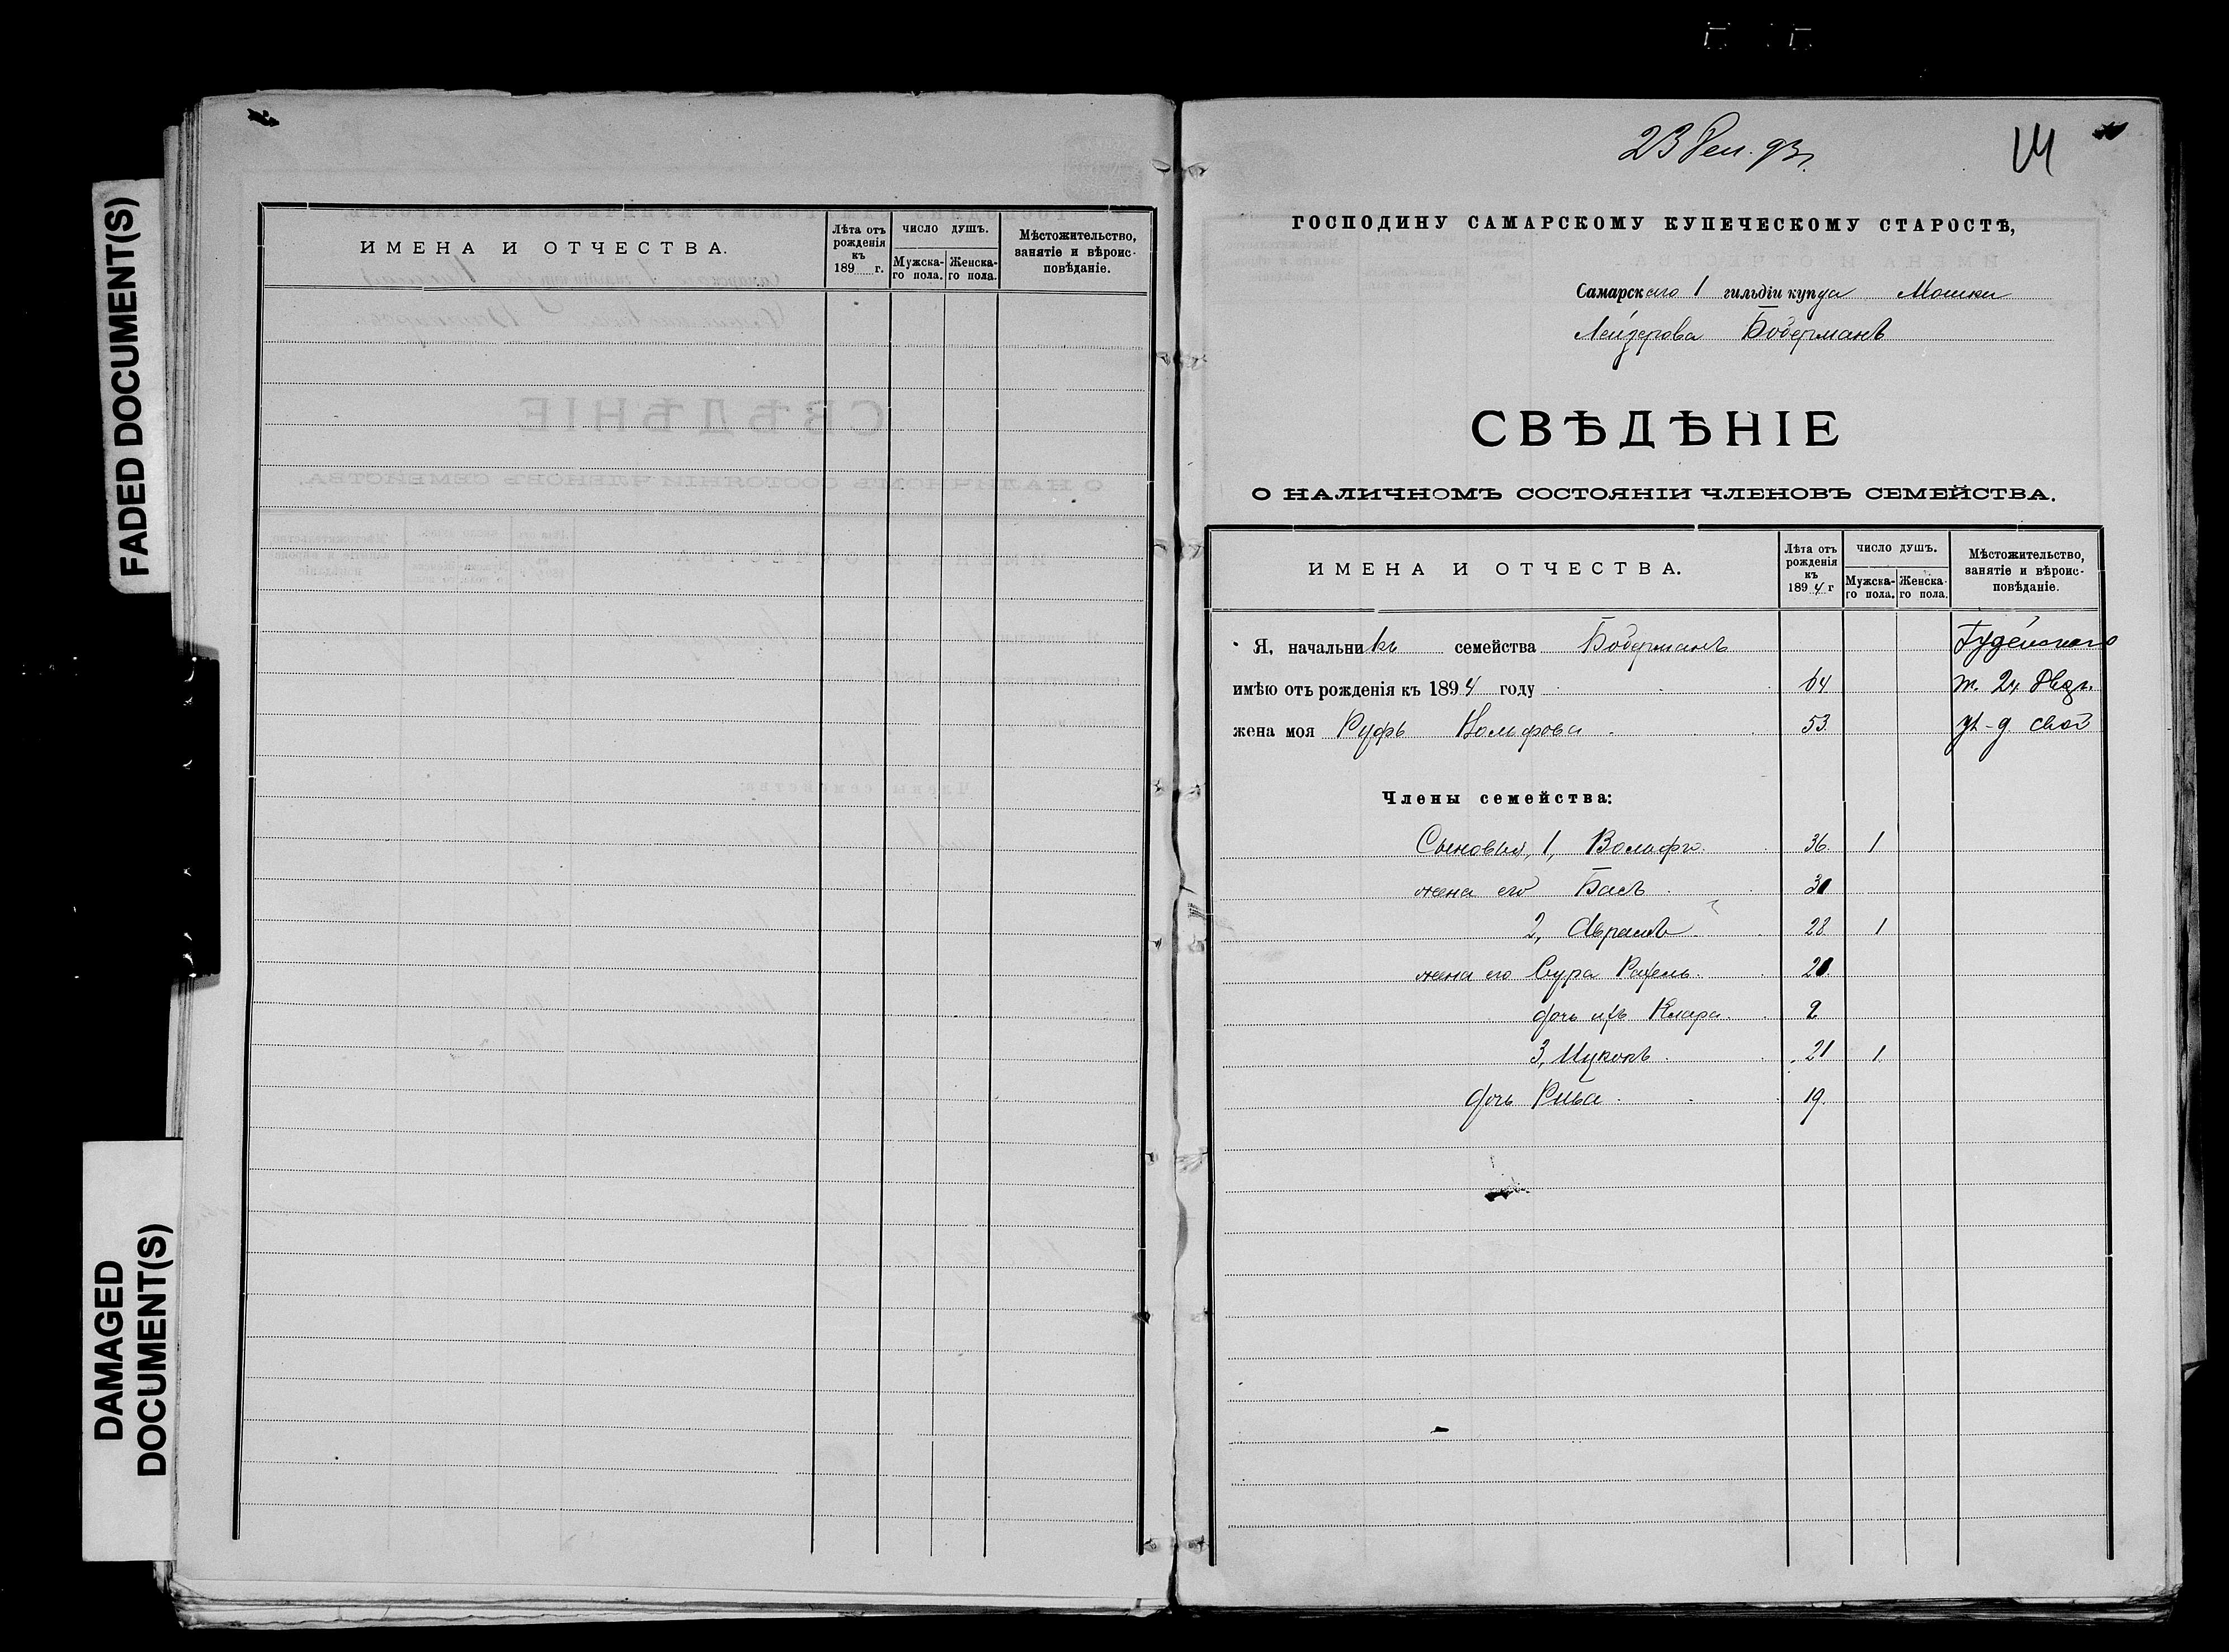 FADED DOCUMENT(S)
DAMAGED
DOCUMENT(S)
ИМЕНА И ОТЧЕСТВА.
Лѣта отъ
рожденія
къ
189 г.
ЧИСЛО ДУШЪ.
Мужска-
го пола.
Женска-
го пола.
Мѣстожительство,
занятіе и вѣроис-
повѣданіе.
23 Дек. 93 г.
14
ГОСПОДИНУ САМАРСКОМУ КУПЕЧЕСКОМУ СТАРОСТѢ,
Самарскаго 1 гильдіи купца Мошки
Лейзерова Боберманъ
СВѢДѢНІЕ
О НАЛИЧНОМЪ СОСТОЯНІИ ЧЛЕНОВЪ СЕМЕЙСТВА.
ИМЕНА И ОТЧЕСТВА.
Лѣта отъ
рожденія
къ
1894 г
ЧИСЛО ДУШЪ.
Мужска-
го пола.
Женска-
го пола.
Мѣстожительство,
занятіе и вѣроис-
повѣданіе.
Я, начальникъ семейства Боберманъ Іудейскаго
имѣю отъ рожденія къ 1894 году 64
жена моя Руфь Вольфова 53 д. свой
Члены семейства:
Сыновья, 1, Вольфъ 36 1
жена его Бася
2, Абрамъ 28 1
жена его Сура Рахель
дочь ихъ Клара 2
3, 21 1
дочь Рива 19